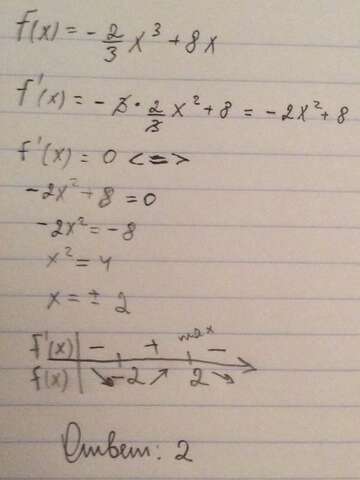 f(x) = - 2/3 x³ + 8x
f'(x) = - 3 · 2/3 x² + 8 = - 2x² + 8
f'(x) = 0 <=>
-2x² + 8 = 0
-2x² = -8
x² = 4
x = ± 2
max
f'(x) | - + -
f(x) | ↘ -2 ↗ 2 ↘
Ответ: 2